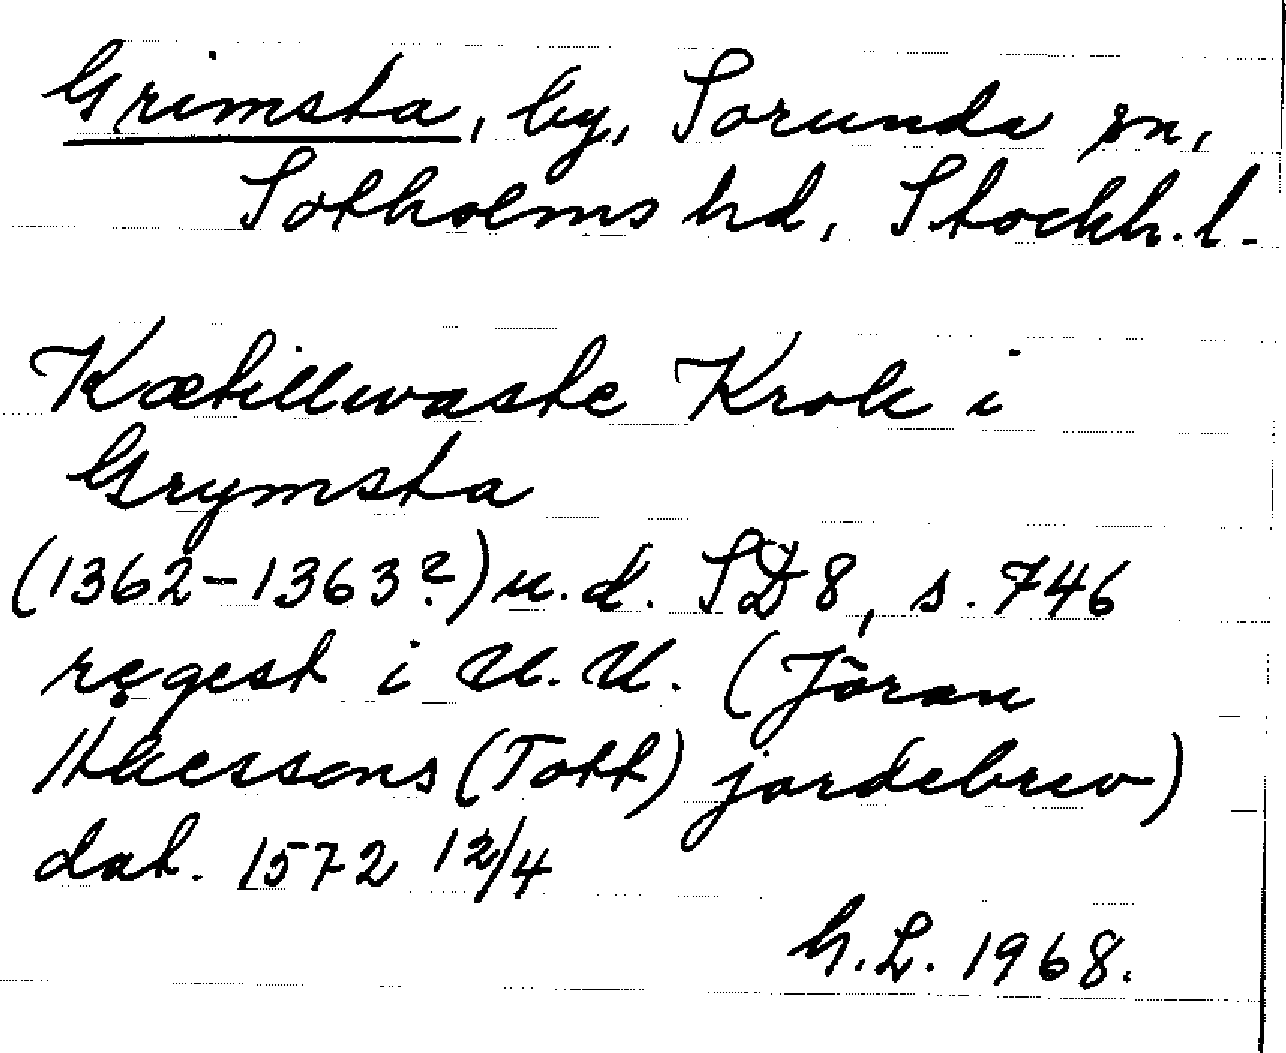 Grimsta, by, Sorunda sn,
Sotholms hd, Stockh. l.
Kætillwaste Krok i
Grymsta
(1362-1363?) u.d. SD 8, s. 746
regest i U.U. (Jöran
Åkessons (Tott) jordebrev)
dat. 1572 12/4
G.L. 1968.